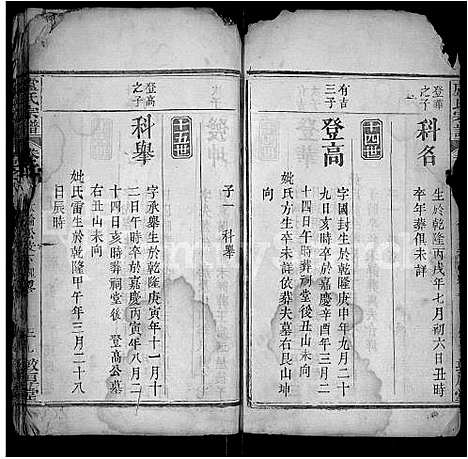 登華之子
科名
生於乾隆丙戌年七月初六日丑時
卒年葬俱未詳
有吉三子
登高
字國封生於乾隆庚申年九月二十
九日亥時卒於嘉慶辛酉年三月二
十四日午時葬祠堂後丑山未向
妣氏方生卒未詳依葬夫墓右艮山坤
向
子一 科舉
十五世
登高之子
科舉
字承舉生於乾隆庚寅年十一月十
二日午時卒於嘉慶丙寅年八月二
十四日亥時葬祠堂後 登高公墓
右丑山未向
妣氏雷生於乾隆甲午年三月二十八
日辰時
氏宗譜
敦厚堂